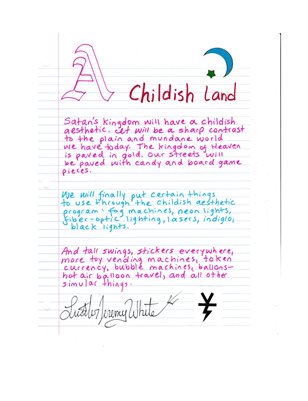 A Childish Land
Satan's kingdom will have a childish
aesthetic. It will be a sharp contrast
to the plain and mundane world
we have today. The kingdom of Heaven
is paved in gold. Our streets will
be paved with candy and board game
pieces.
We will finally put certain things
to use through the childish aesthetic
program: fog machines, neon lights,
fiber-optic lighting, lasers, indiglo,
black lights.
And tall swings, stickers everywhere,
more toy vending machines, token
currency, bubble machines, ballons—
hot air balloon travel, and all other
simular things.
Jeremy White